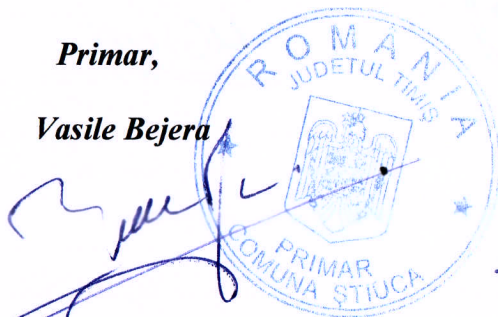 Primar,
Vasile Bejera
ROMÂNIA
JUDEȚUL TIMIȘ
PRIMAR
COMUNA ȘTIUCA